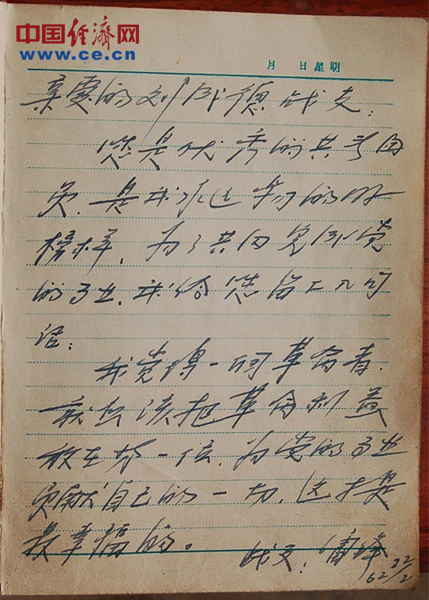 中国经济网
www.ce.cn
月 日星期
亲爱的刘成德战友：
您是优秀的共青团
员，是我永远学习的好
榜样，为了共同完成党
的事业，我给您留上几句
话：
我觉得一个革命者，
就应该把革命利益
放在第一位，为党的事业
贡献自己的一切，这才是
最幸福的。
战友：雷锋
62 22/2